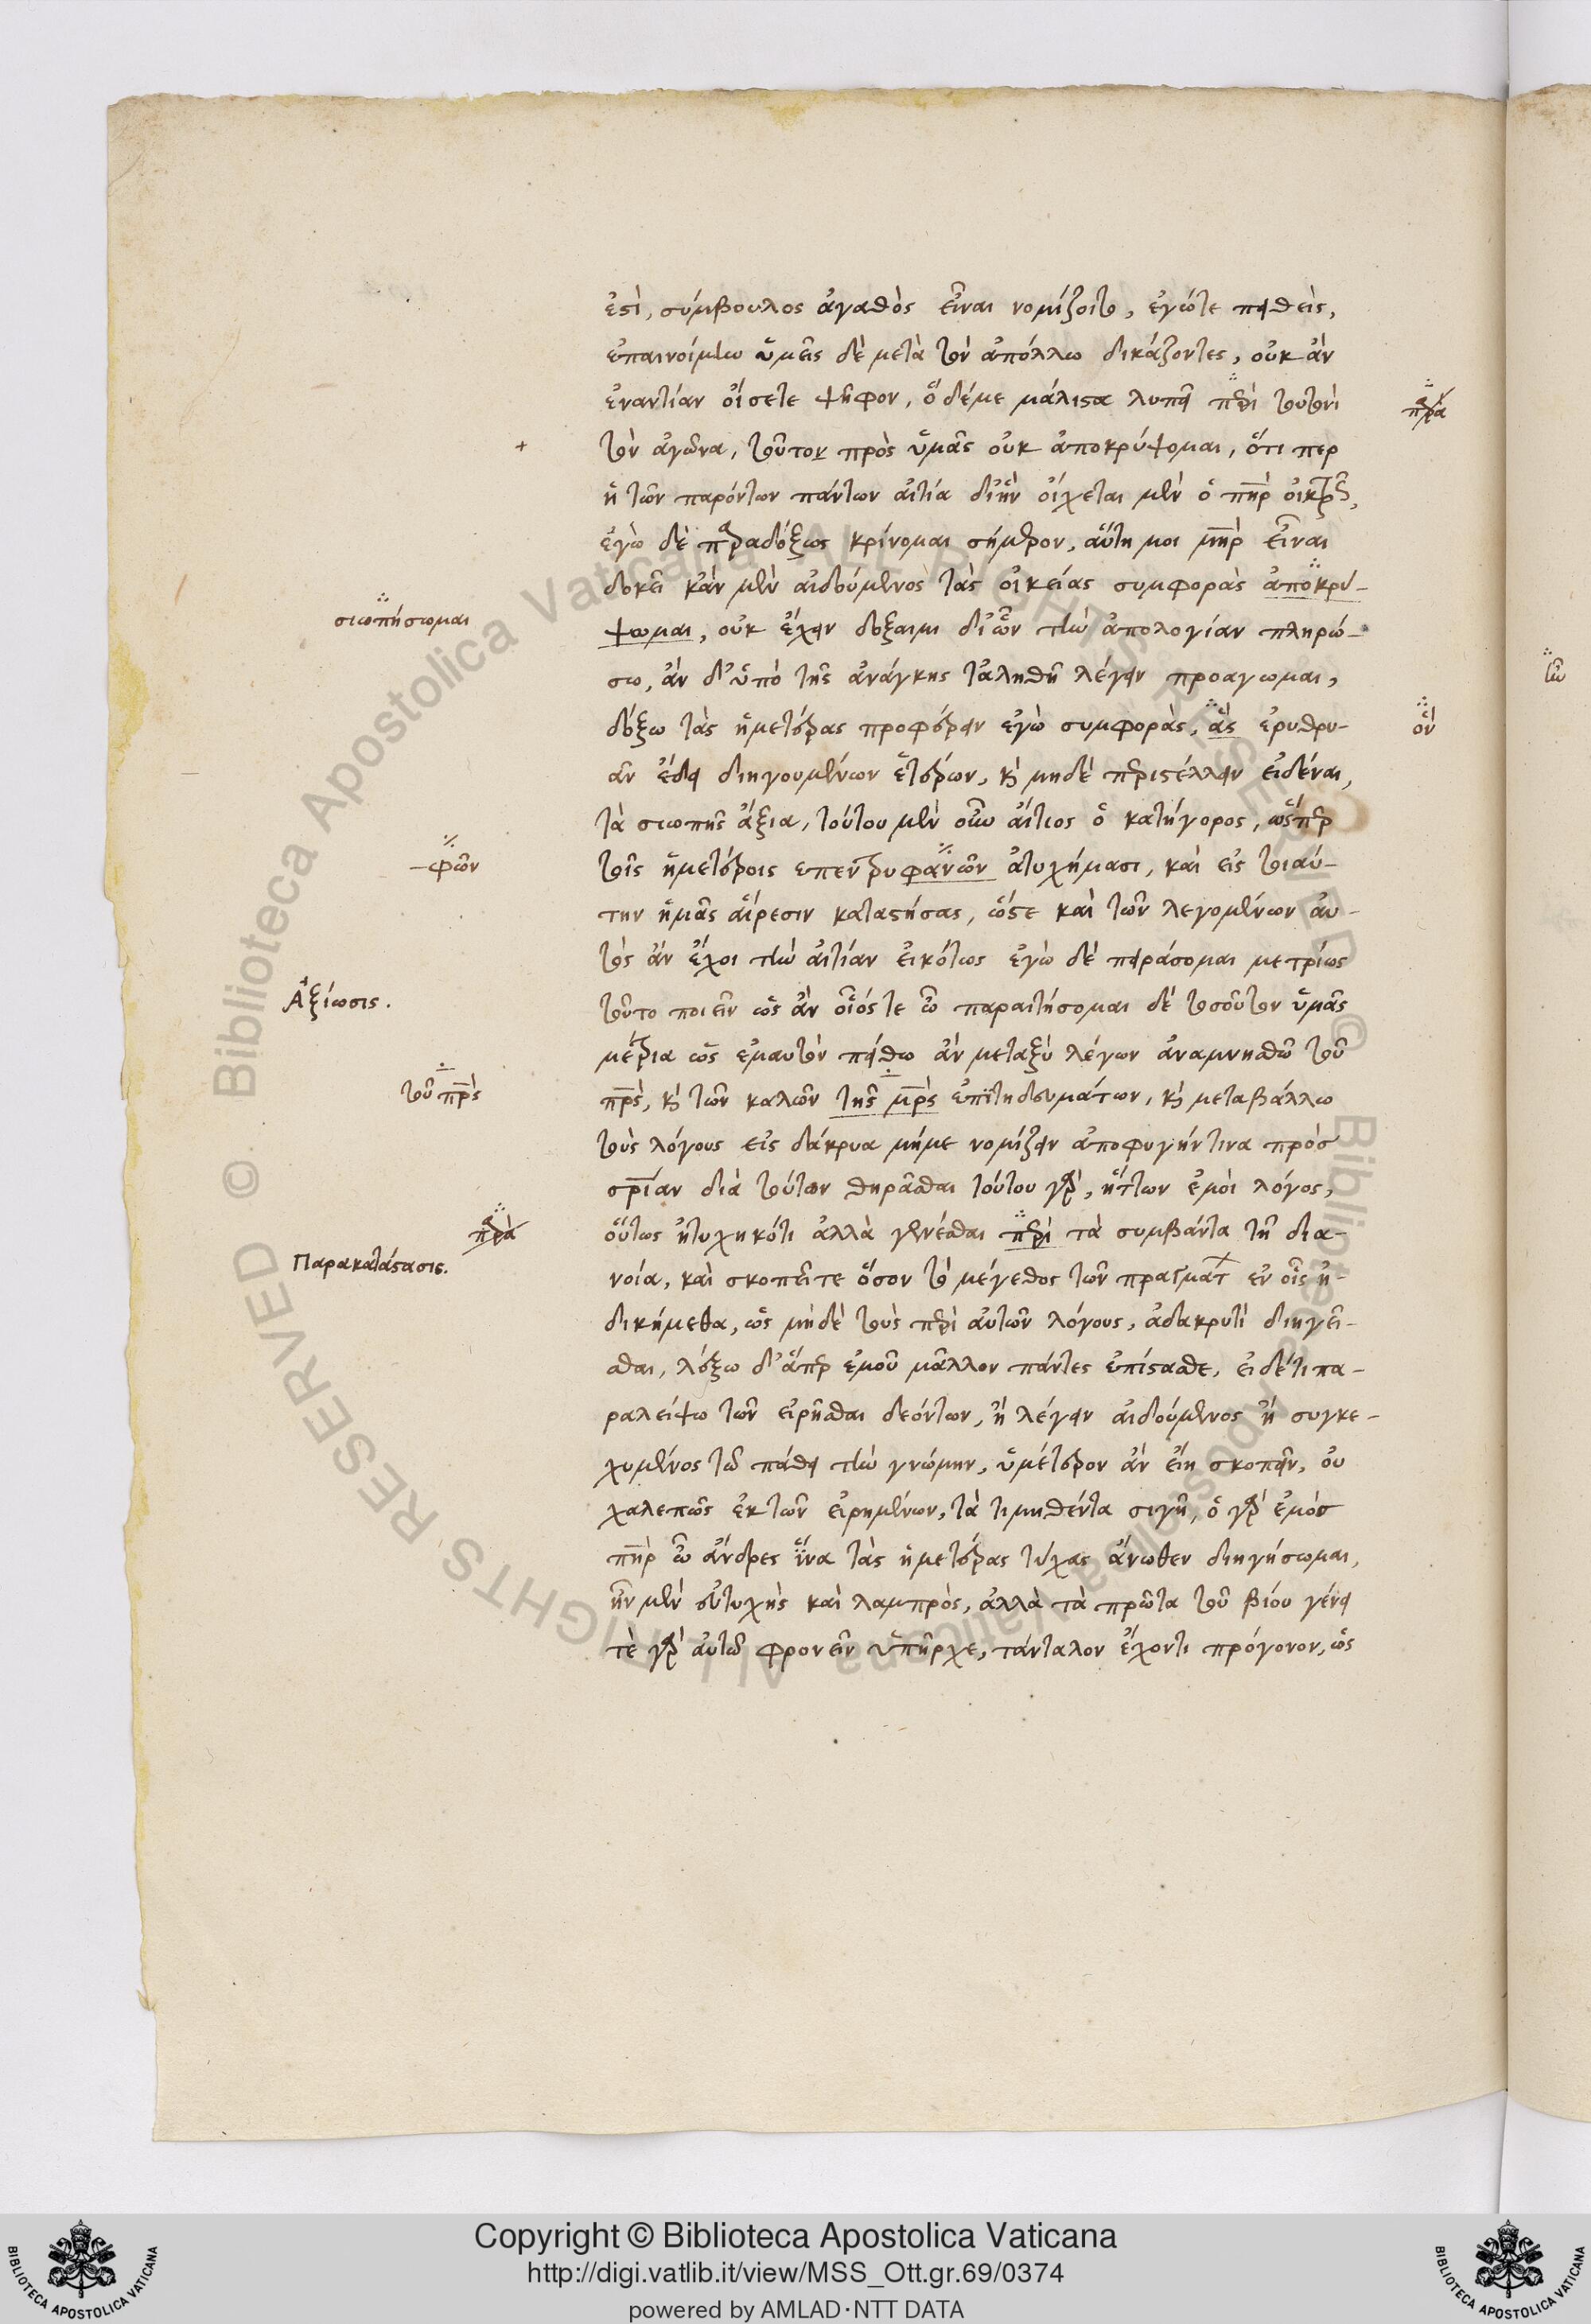 ἐστὶ, σύμβουλος ἀγαθὸς εἶναι νομίζοιτο, ἐγώτε πεισθεὶς,
ἐπαινοίμην ὑμεῖς δὲ μετὰ τὸν ἀπόλλω δικάζοντες, οὐκ ἂν
ἐναντίαν οἴσετε ψῆφον, ὃ δέμε μάλιστα λυπεῖ περὶ τουτονὶ
παρὰ
+
τὸν ἀγῶνα, τοῦτον πρὸς ὑμᾶς οὐκ ἀποκρύψομαι, ὅτι περ
ἡ τῶν παρόντων πάντων αἰτία δι'ἣν οἴχεται μὲν ὁ πηρ οἰκτρῶς,
ἐγὼ δὲ παραδόξως κρίνομαι σήμερον, αὕτη μοι μηρ εἶναι
δοκεῖ κἂν μὲν αἰδούμενος τὰς οἰκείας συμφορὰς ἀποκρύ-
σιωπήσωμαι
ψωμαι, οὐκ ἔχειν δόξαιμι δι'ὧν τὴν ἀπολογίαν πληρώ-
σω, ἂν δ'ὑπὸ τῆς ἀνάγκης τἀληθῆ λέγειν προαγωμαι,
δόξω τὰς ἡμετέρας προφέρειν ἐγὼ συμφορὰς, ἃς ἐρυθρι-
ὃν
ᾶν ἔδει διηγουμένων ἑτέρων, καὶ μηδὲ περιστέλλειν εἰδέναι,
τὰ σιωπῆς ἄξια, τούτου μὲν οὖν αἴτιος ὁ κατήγορος, ὥσπερ
-φῶν
τοῖς ἡμετέροις ἐπεντρυφανῶν ἀτυχήμασι, καὶ εἰς τοιαύ-
την ἡμᾶς αἵρεσιν καταστήσας, ὥστε καὶ τῶν λεγομένων αὐ-
τὸς ἂν ἔχοι τὴν αἰτίαν εἰκότως ἐγὼ δὲ πειράσομαι μετρίως
Ἀξίωσις.
τοῦτο ποιεῖν ὡς ἂν οἷός τε ὦ παραιτήσομαι δὲ τοσοῦτον ὑμᾶς
μέτρια ὡς ἐμαυτὸν πείθω ἂν μεταξὺ λέγων ἀναμνησθῶ τοῦ
τοῦ πρς
πρς, καὶ τῶν καλῶν τῆς μρς ἐπιτηδευμάτων, καὶ μεταβάλλω
τοὺς λόγους εἰς δάκρυα μήμε νομίζειν ἀποφυγήν τινα πρὸσ
σρίαν διὰ τούτων θηρᾶσθαι τούτου γὰρ, ἥττων ἐμοὶ λόγος,
παρὰ
οὕτως ἠτυχηκότι ἀλλὰ γενέσθαι περὶ τὰ συμβάντα τῇ δια-
Παρακατάστασις.
νοία, καὶ σκοπεῖτε ὅσον τὸ μέγεθος τῶν πραγμάτ ἐν οἷς ἠ-
δικήμεθα, ὡς μηδὲ τοὺς περὶ αὐτῶν λόγους, ἀδακρυτὶ διηγεῖ-
σθαι, λέξω δ'ἅπερ ἐμοῦ μᾶλλον πάντες ἐπίστασθε, εἰ δέτι πα-
ραλείψω τῶν εἰρῆσθαι δεόντων, ἢ λέγειν αἰδούμενος ἢ συγκε-
χυμένος τῶ πάθει τὴν γνώμην, ὑμέτερον ἂν εἴη σκοπεῖν, οὐ
χαλεπῶς ἐκ τῶν εἰρημένων, τὰ τιμηθέντα σιγῇ, ὁ γὰρ ἐμὸσ
πηρ ὦ ἄνδρες ἵνα τὰς ἡμετέρας τύχας ἄνωθεν διηγήσωμαι,
ἦν μὲν εὐτυχὴς καὶ λαμπρὸς, ἀλλὰ τὰ πρῶτα τοῦ βίου γένει
τὲ γὰρ αὐτῶ φρονεῖν ὑπῆρχε, τάνταλον ἔχοντι πρόγονον, ὡς
Copyright © Biblioteca Apostolica Vaticana
http://digi.vatlib.it/view/MSS_Ott.gr.69/0374
powered by AMLAD·NTT DATA